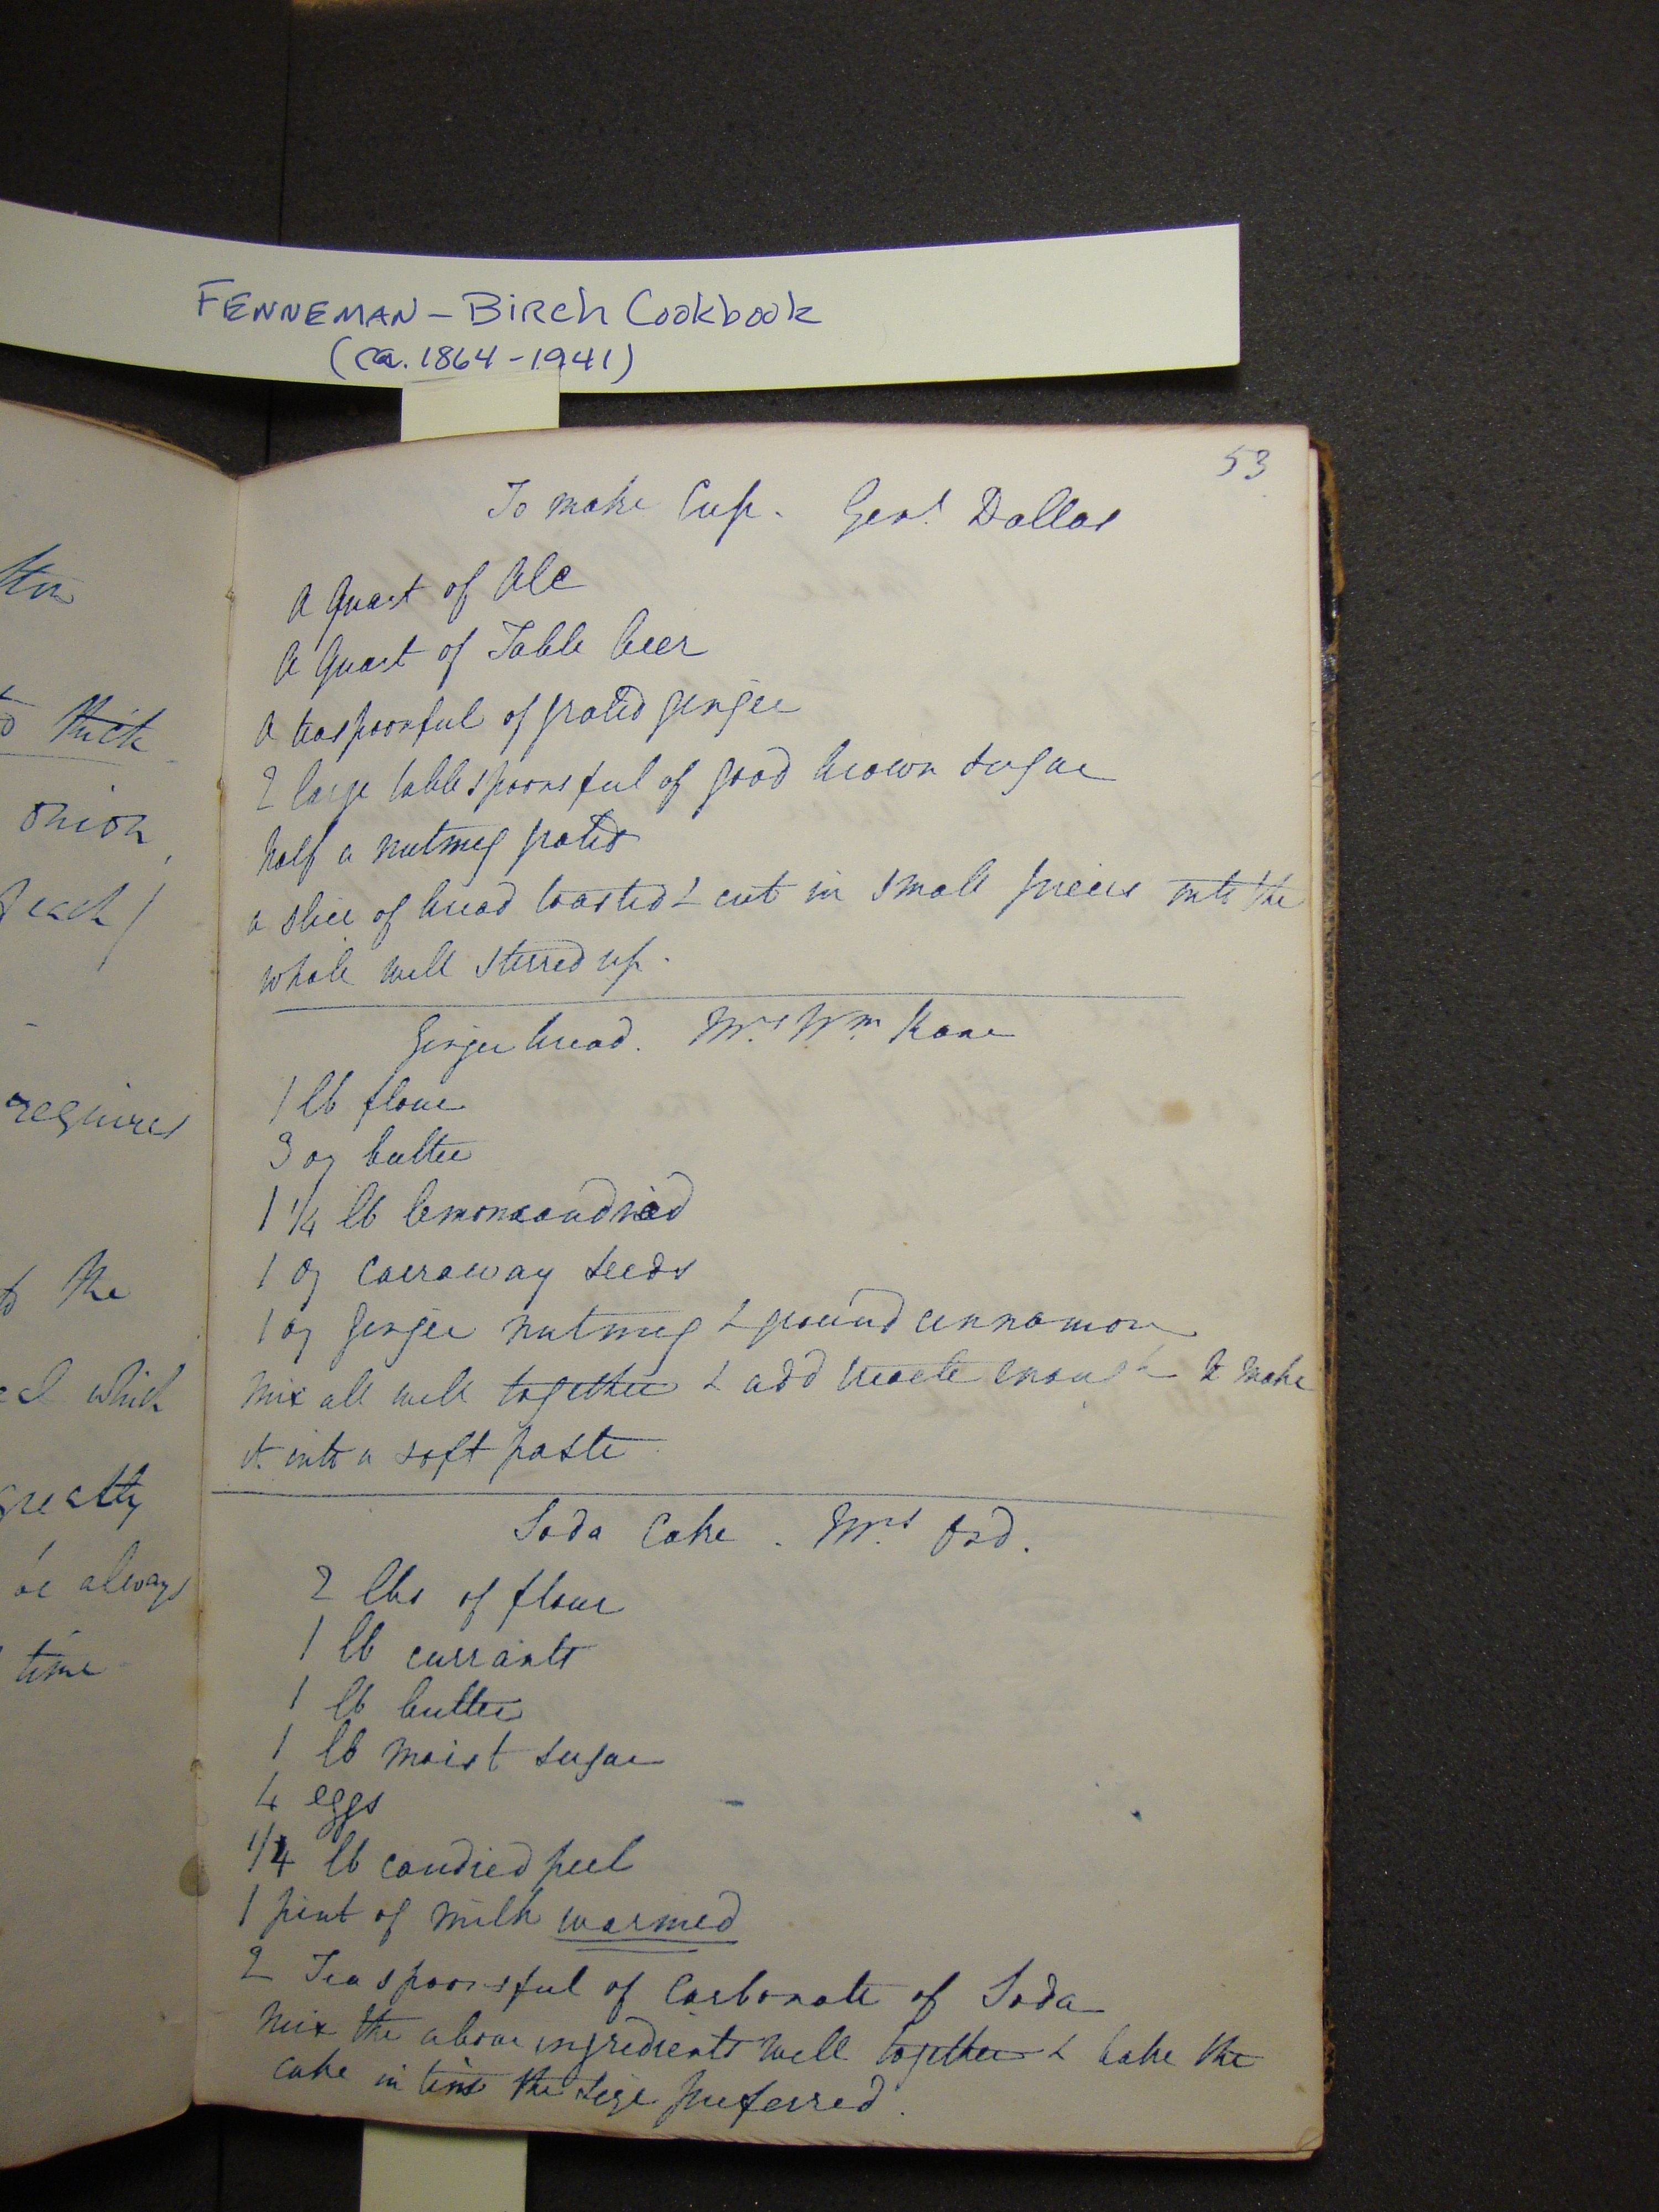 FENNEMAN - Birch Cookbook
(ca. 1864-1941)
thick
onion,
requires
to the
which
greatly
be always
time
53
To make Cup. Genl. Dallas
A Quart of Ale
A Quart of Table beer
A teaspoonful of grated ginger
2 large tablespoonsful of good brown sugar
half a nutmeg grated
a slice of bread toasted & cut in small pieces into the
whole well stirred up.
Ginger bread. Mrs. Wm. Kane
1 lb flour
3 oz butter
1 1/4 lb lemon
1 oz carraway seeds
1 oz ginger nutmeg & ground cinnamon
Mix all well together & add treacle enough to make
it into a soft paste
Soda Cake. Mrs. Ord.
2 lbs of flour
1 lb currants
1 lb butter
1 lb moist sugar
4 eggs
1/4 lb candied peel
1 pint of milk warmed
2 Teaspoonsful of Carbonate of Soda
Mix the above ingredients well together & bake the
cake in tins the size preferred.